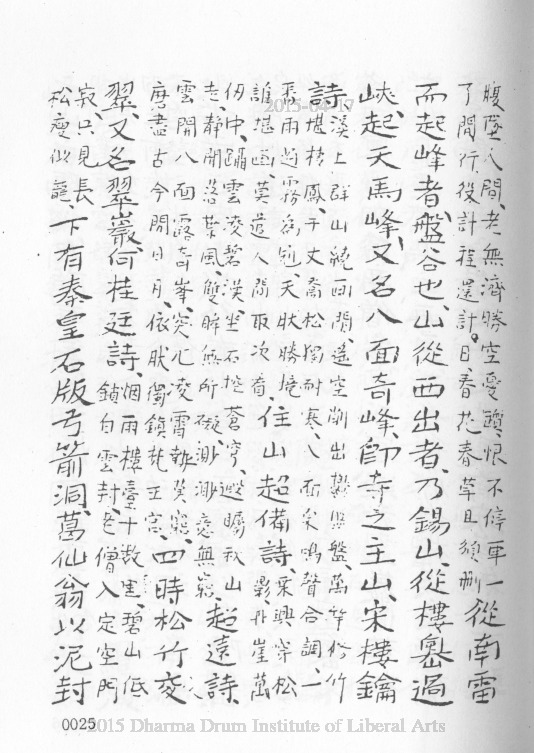 腹墜人間老無濟勝空憂躓恨不停車一
了閒行役計程還計日看花春草且須刪
從南雷
而起峰者盤谷也山從西出者乃錫山從樓嶴過
峽起天馬峰又名八面奇峰即寺之主山宋樓鑰
詩
溪上群山繞四閒遙空削出
盤萬竿修竹
堪栖鳳千丈喬松獨耐寒
鳴聲合調一
天狀勝境
誰堪畫莫道人間取次看
住山超備詩
乘興穿松
崖萬
仞中躡雲凌碧漢坐石挖蒼穹
秋山
老靜聞落葉風雙眸無所礙渺渺意無窮
超遠詩
雲開八面露奇峯突兀凌霄執與窮
磨盡古今閒日月依狀獨鎮梵王宮
四時松竹交
翠又名翠巖何桂廷詩
烟雨樓臺十數里碧山低
鎖白雲封老僧入定空門
寂只見長
松瘦似龍
下有秦皇石版弓箭洞葛仙翁以泥封
0025
2015-04-17
2015 Dharma Drum Institute of Liberal Arts